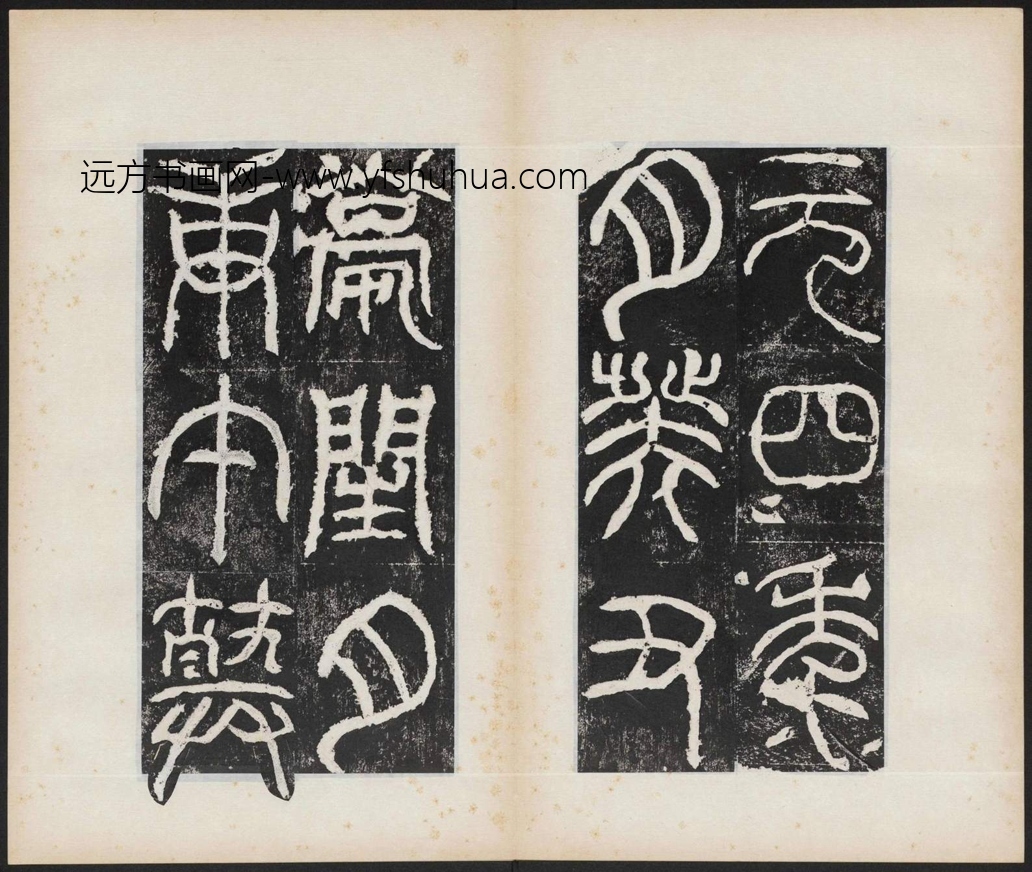 远方书画网-www.yfshuhua.com
元四年
月癸丑
薨閏月
庚午葬